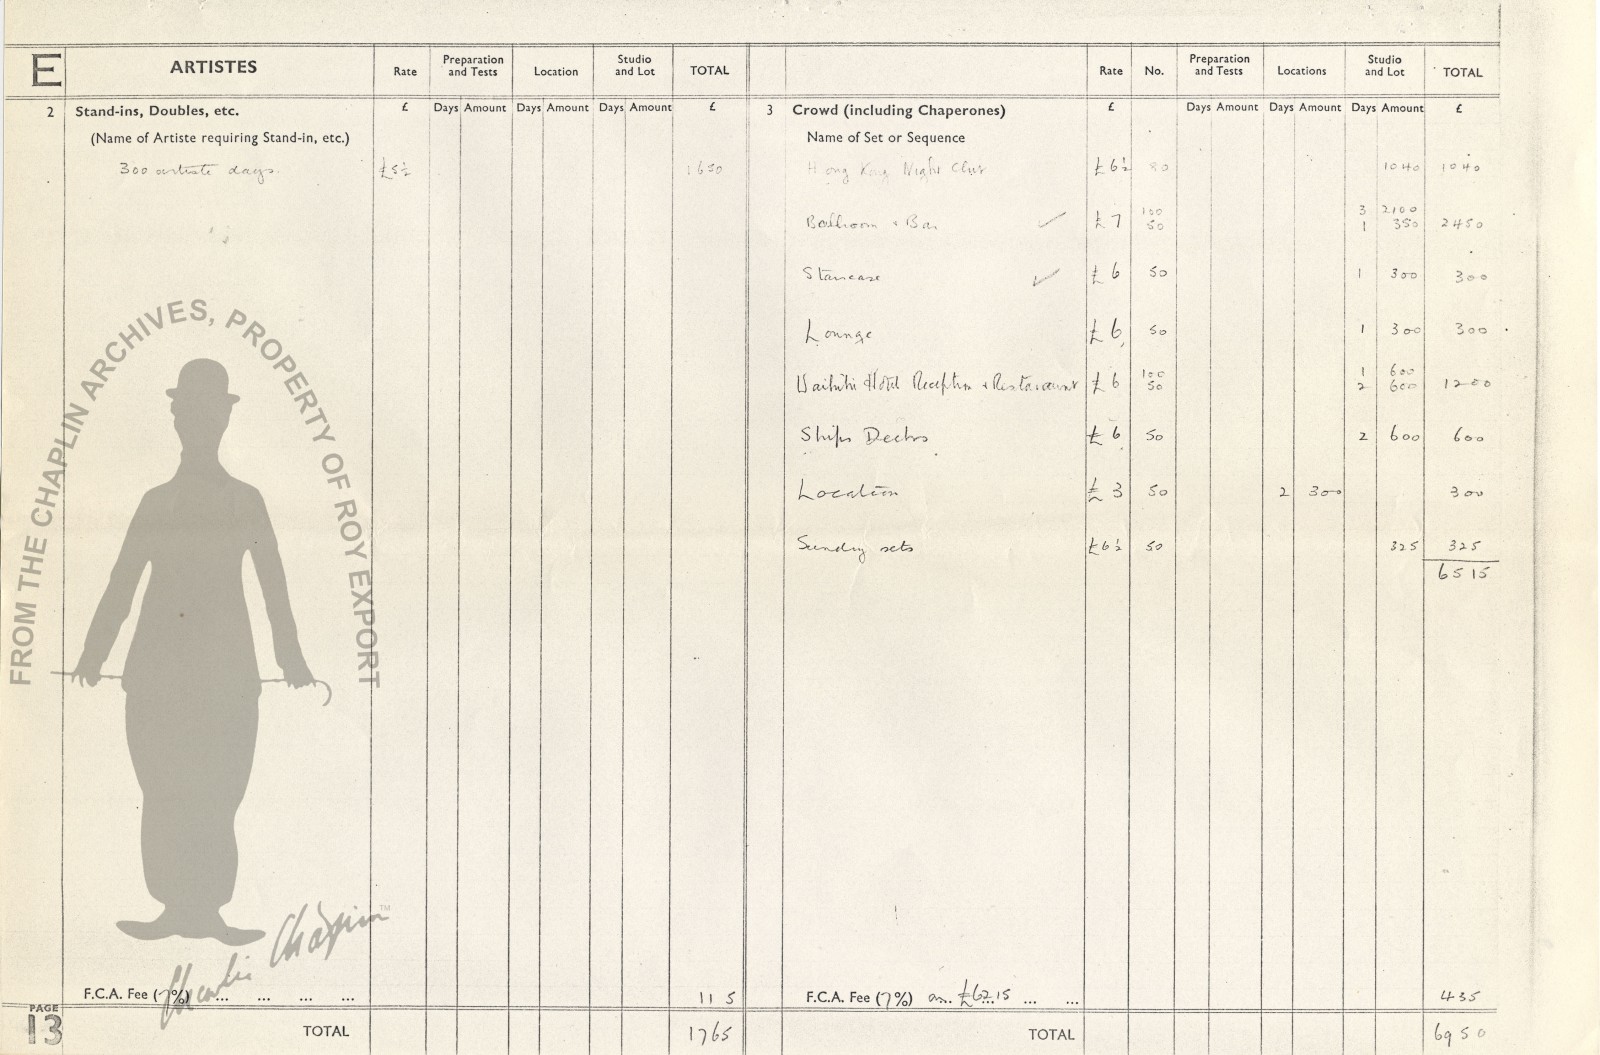 E ARTISTES Rate Preparation and Tests Location Studio and Lot TOTAL
2 Stand-ins, Doubles, etc. £ Days Amount Days Amount Days Amount £
(Name of Artiste requiring Stand-in, etc.)
300 artiste days. £5½ 1650
F.C.A. Fee (7%) ... ... ... ... 115
PAGE 13
TOTAL 1765
Rate No. Preparation and Tests Locations Studio and Lot TOTAL
3 Crowd (including Chaperones) £ Days Amount Days Amount Days Amount £
Name of Set or Sequence
Hong Kong Night Club £6½ 80 1040 1040
Ballroom + Bar £7 100 3 2100
50 1 350 2450
Staircase £6 50 1 300 300
Lounge £6 50 1 300 300
Waikiki Hotel Reception + Restaurant £6 100 1 600
50 2 600 1200
Ships Decks £6 50 2 600 600
Location £3 50 2 300 300
Sundry sets £6½ 50 325 325
6515
F.C.A. Fee (7%) on £6215 ... ... 435
TOTAL 6950
FROM THE CHAPLIN ARCHIVES, PROPERTY OF ROY EXPORT
Charlie Chaplin™